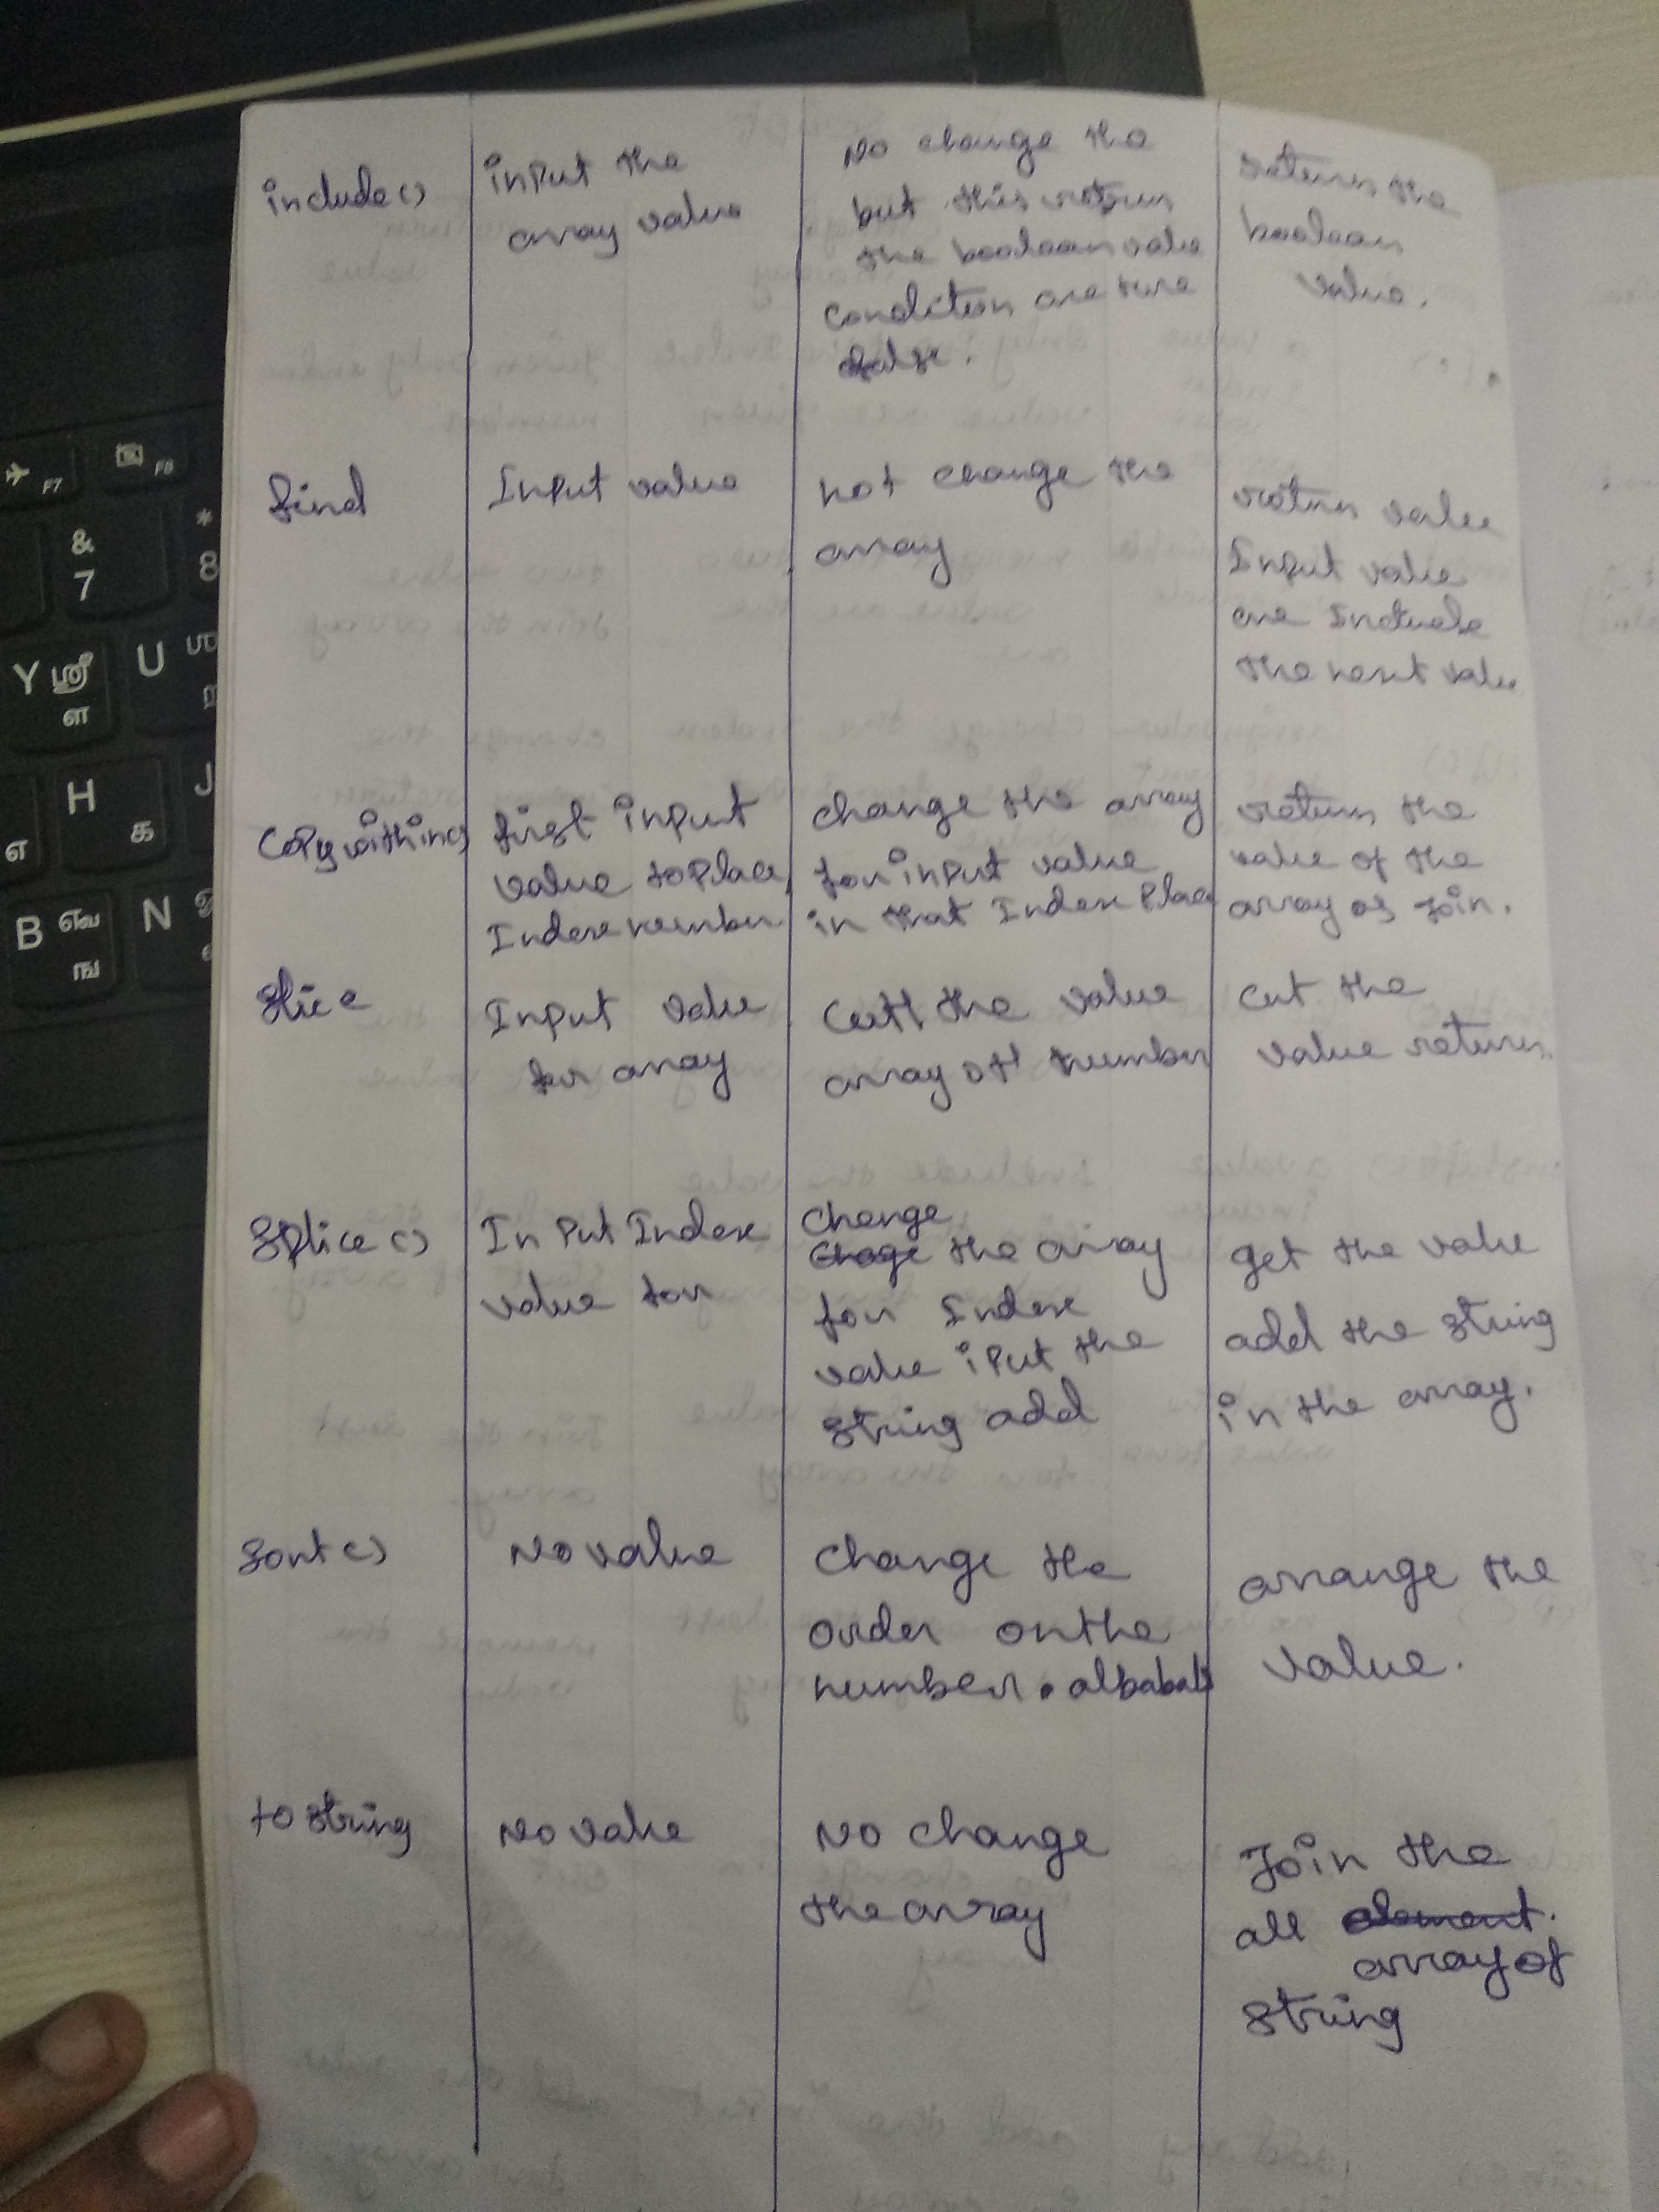 include()
input the
array value
No change the
but this return
the boolean value
condition are ture
false.
return the
boolean
value.
find
Input value
not change the
array
return value
Input value
are
the next value
Copywithin()
first input
value to place
Index number.
change the array
for input value
in that Index place
return the
value of the
array as join.
Slice
Input value
for array
the value
array of number
cut the
value return.
Splice()
Input Index
value for
change
the array
for Index
value iput the
string add
get the value
add the string
in the array.
Sort()
No value
change the
order on the
number.
arrange the
value.
to string
No value
No change
the array
Join the
all element.
array of
string
F7
F8
&
7
*
8
Y ஸ்ரீ
ள
U
H
க
J
எ
B
ங
N